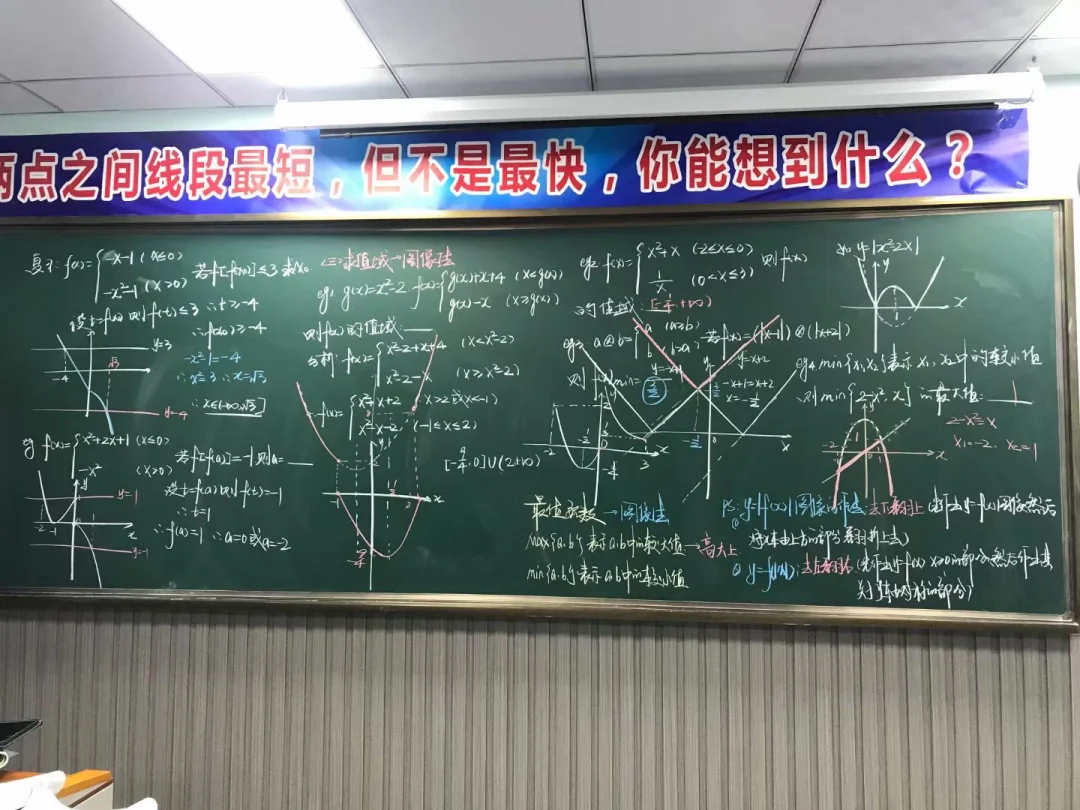 两点之间线段最短，但不是最快，你能想到什么？
复习: f(x)={ -x-1 (x≤0)
-x²-1 (x>0) 若f[f(x₀)]≤3 求x₀
设t=f(x) 则f(t)≤3 ∴t≥-4
∴f(x₀)≥-4
y=3
-x²-1=-4
∴x²=3 ∴x=√3
∴x∈(-∞,√3]
-4
√3
y=-4
eg f(x)={ x²+2x+1 (x≤0)
-x² (x>0)
若f[f(a)]=-1则a=__
设t=f(a)则f(t)=-1
∴t=1
∴f(a)=1 ∴a=0或a=-2
y=1
-2 -1
x
y=-1
求值域→图像法
eg1 g(x)=x²-2 f(x)={ g(x)+x+4 (x<g(x))
g(x)-x (x≥g(x))
则f(x)的值域:__
分析: f(x)={ x²-2+x+4 (x<x²-2)
x²-2-x (x≥x²-2)
f(x)={ x²+x+2 x>2或x<-1)
x²-x-2 (-1≤x≤2)
[-9/4,0]∪(2+∞)
-1
1/2
2
x
-9/4
eg2 f(x)={ x²+x (-2≤x≤0)
1/x (0<x≤3) 则f(x)
的值域: [-1/4,+∞)
eg3 a⊗b={ a (a≥b)
b b>a 若f(x)=(|x-1|)⊗(|x+2|)
则f(x)min=(3/2)
y=-x+1
y=x+2
-x+1=x+2
x=-1/2
-2 -1/2 3 x
-1/4
-1/2
最值函数→图像法
max{a,b}表示a,b中的较大值→高大上
min{a,b}表示a,b中的较小值
如 y=|x²-2x|
y
x
eg4 min{x₁,x₂}表示x₁,x₂中的较小值
则min{2-x², x}的最大值: 1
2-x²=x
x₁=-2. x₂=1
-2
x
PS: ① y=|f(x)|图像的作法: 去下翻上 (先作出y=f(x)图像然后
将x轴下方的部分翻折上去)
② y=f(|x|): 去左翻右 (先作出y=f(x) x≥0的部分,然后作出其
关于y轴对称的部分)